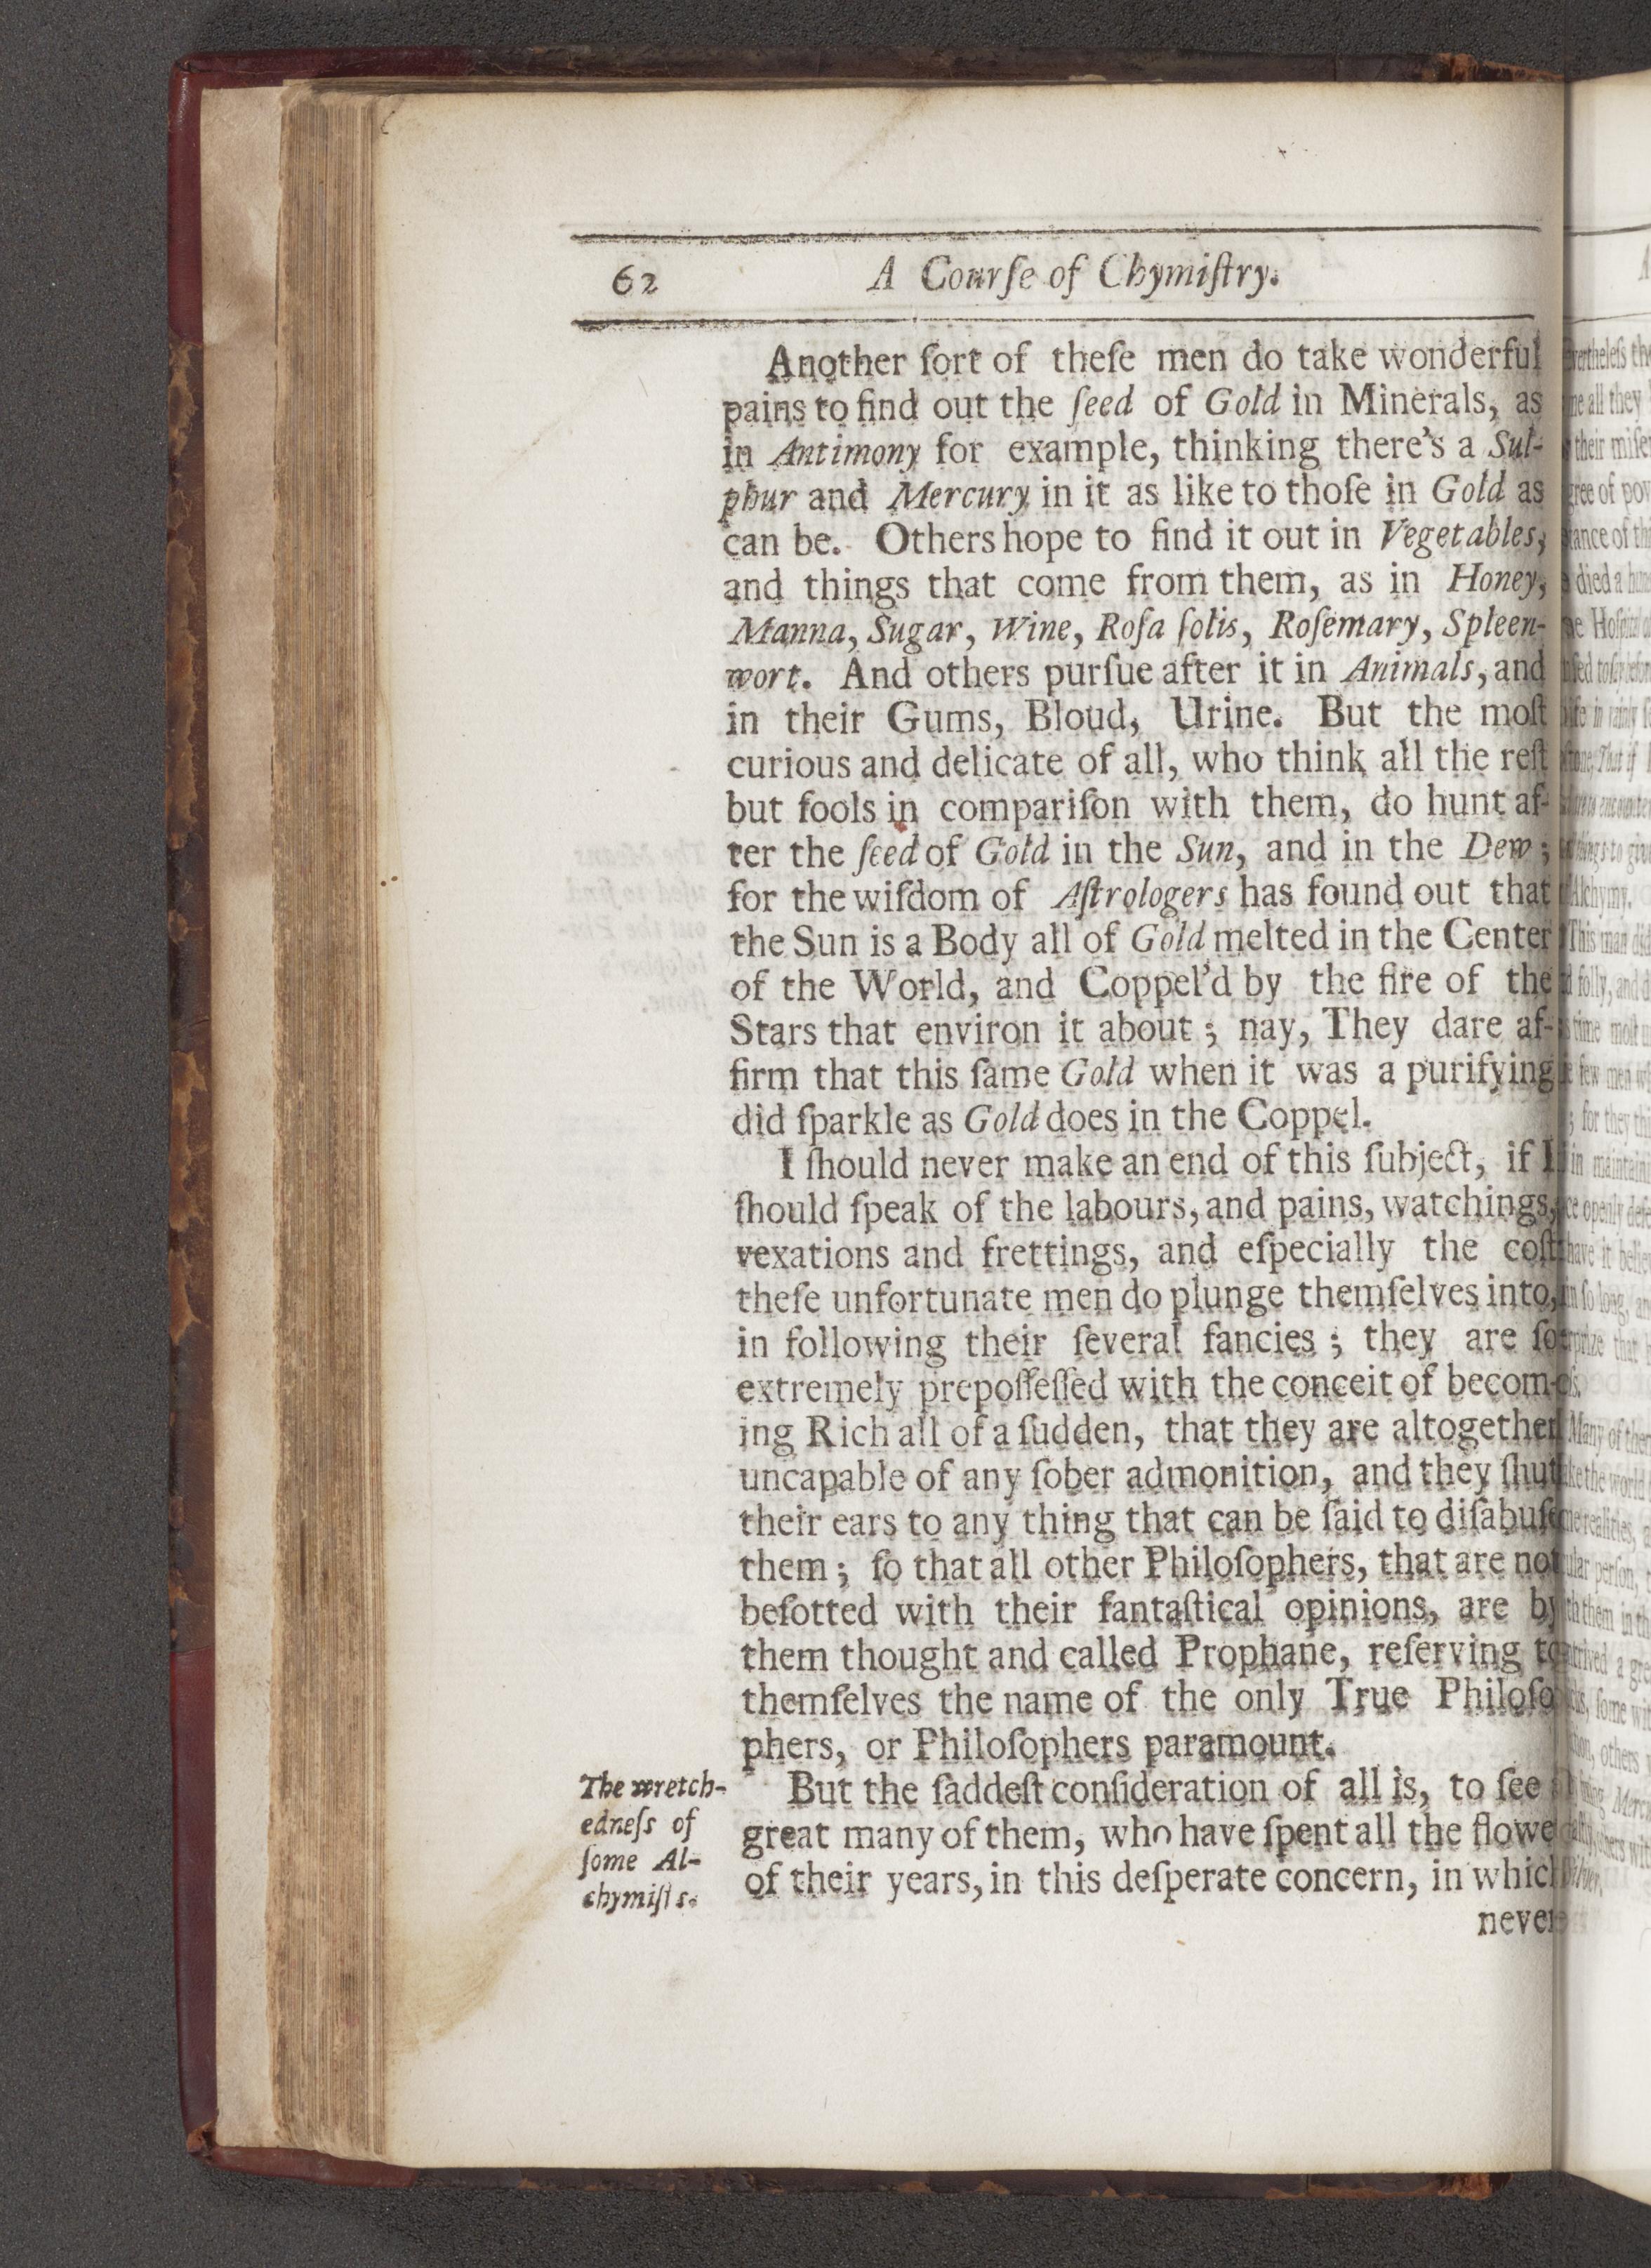 62 A Courſe of Chymiſtry.
Another ſort of theſe men do take wonderful
pains to find out the ſeed of Gold in Minerals, as
in Antimony for example, thinking there's a Sul-
phur and Mercury in it as like to thoſe in Gold as
can be. Others hope to find it out in Vegetables,
and things that come from them, as in Honey,
Manna, Sugar, Wine, Roſa ſolis, Roſemary, Spleen-
wort. And others purſue after it in Animals, and
in their Gums, Bloud, Urine. But the moſt
curious and delicate of all, who think all the reſt
but fools in compariſon with them, do hunt af-
ter the ſeed of Gold in the Sun, and in the Dew;
for the wiſdom of Aſtrologers has found out that
the Sun is a Body all of Gold melted in the Center
of the World, and Coppel'd by the fire of the
Stars that environ it about; nay, They dare af-
firm that this ſame Gold when it was a purifying
did ſparkle as Gold does in the Coppel.
I ſhould never make an end of this ſubject, if I
ſhould ſpeak of the labours, and pains, watchings,
vexations and frettings, and eſpecially the coſt
theſe unfortunate men do plunge themſelves into,
in following their ſeveral fancies; they are ſo
extremely prepoſſeſſed with the conceit of becom-
ing Rich all of a ſudden, that they are altogether
uncapable of any ſober admonition, and they ſhut
their ears to any thing that can be ſaid to diſabuſe
them; ſo that all other Philoſophers, that are not
beſotted with their fantaſtical opinions, are by
them thought and called Prophane, reſerving to
themſelves the name of the only True Philoſo
phers, or Philoſophers paramount.
The wretch-
edneſs of
ſome Al-
chymiſts.
But the ſaddeſt conſideration of all is, to ſee
great many of them, who have ſpent all the flowe
of their years, in this deſperate concern, in which
never